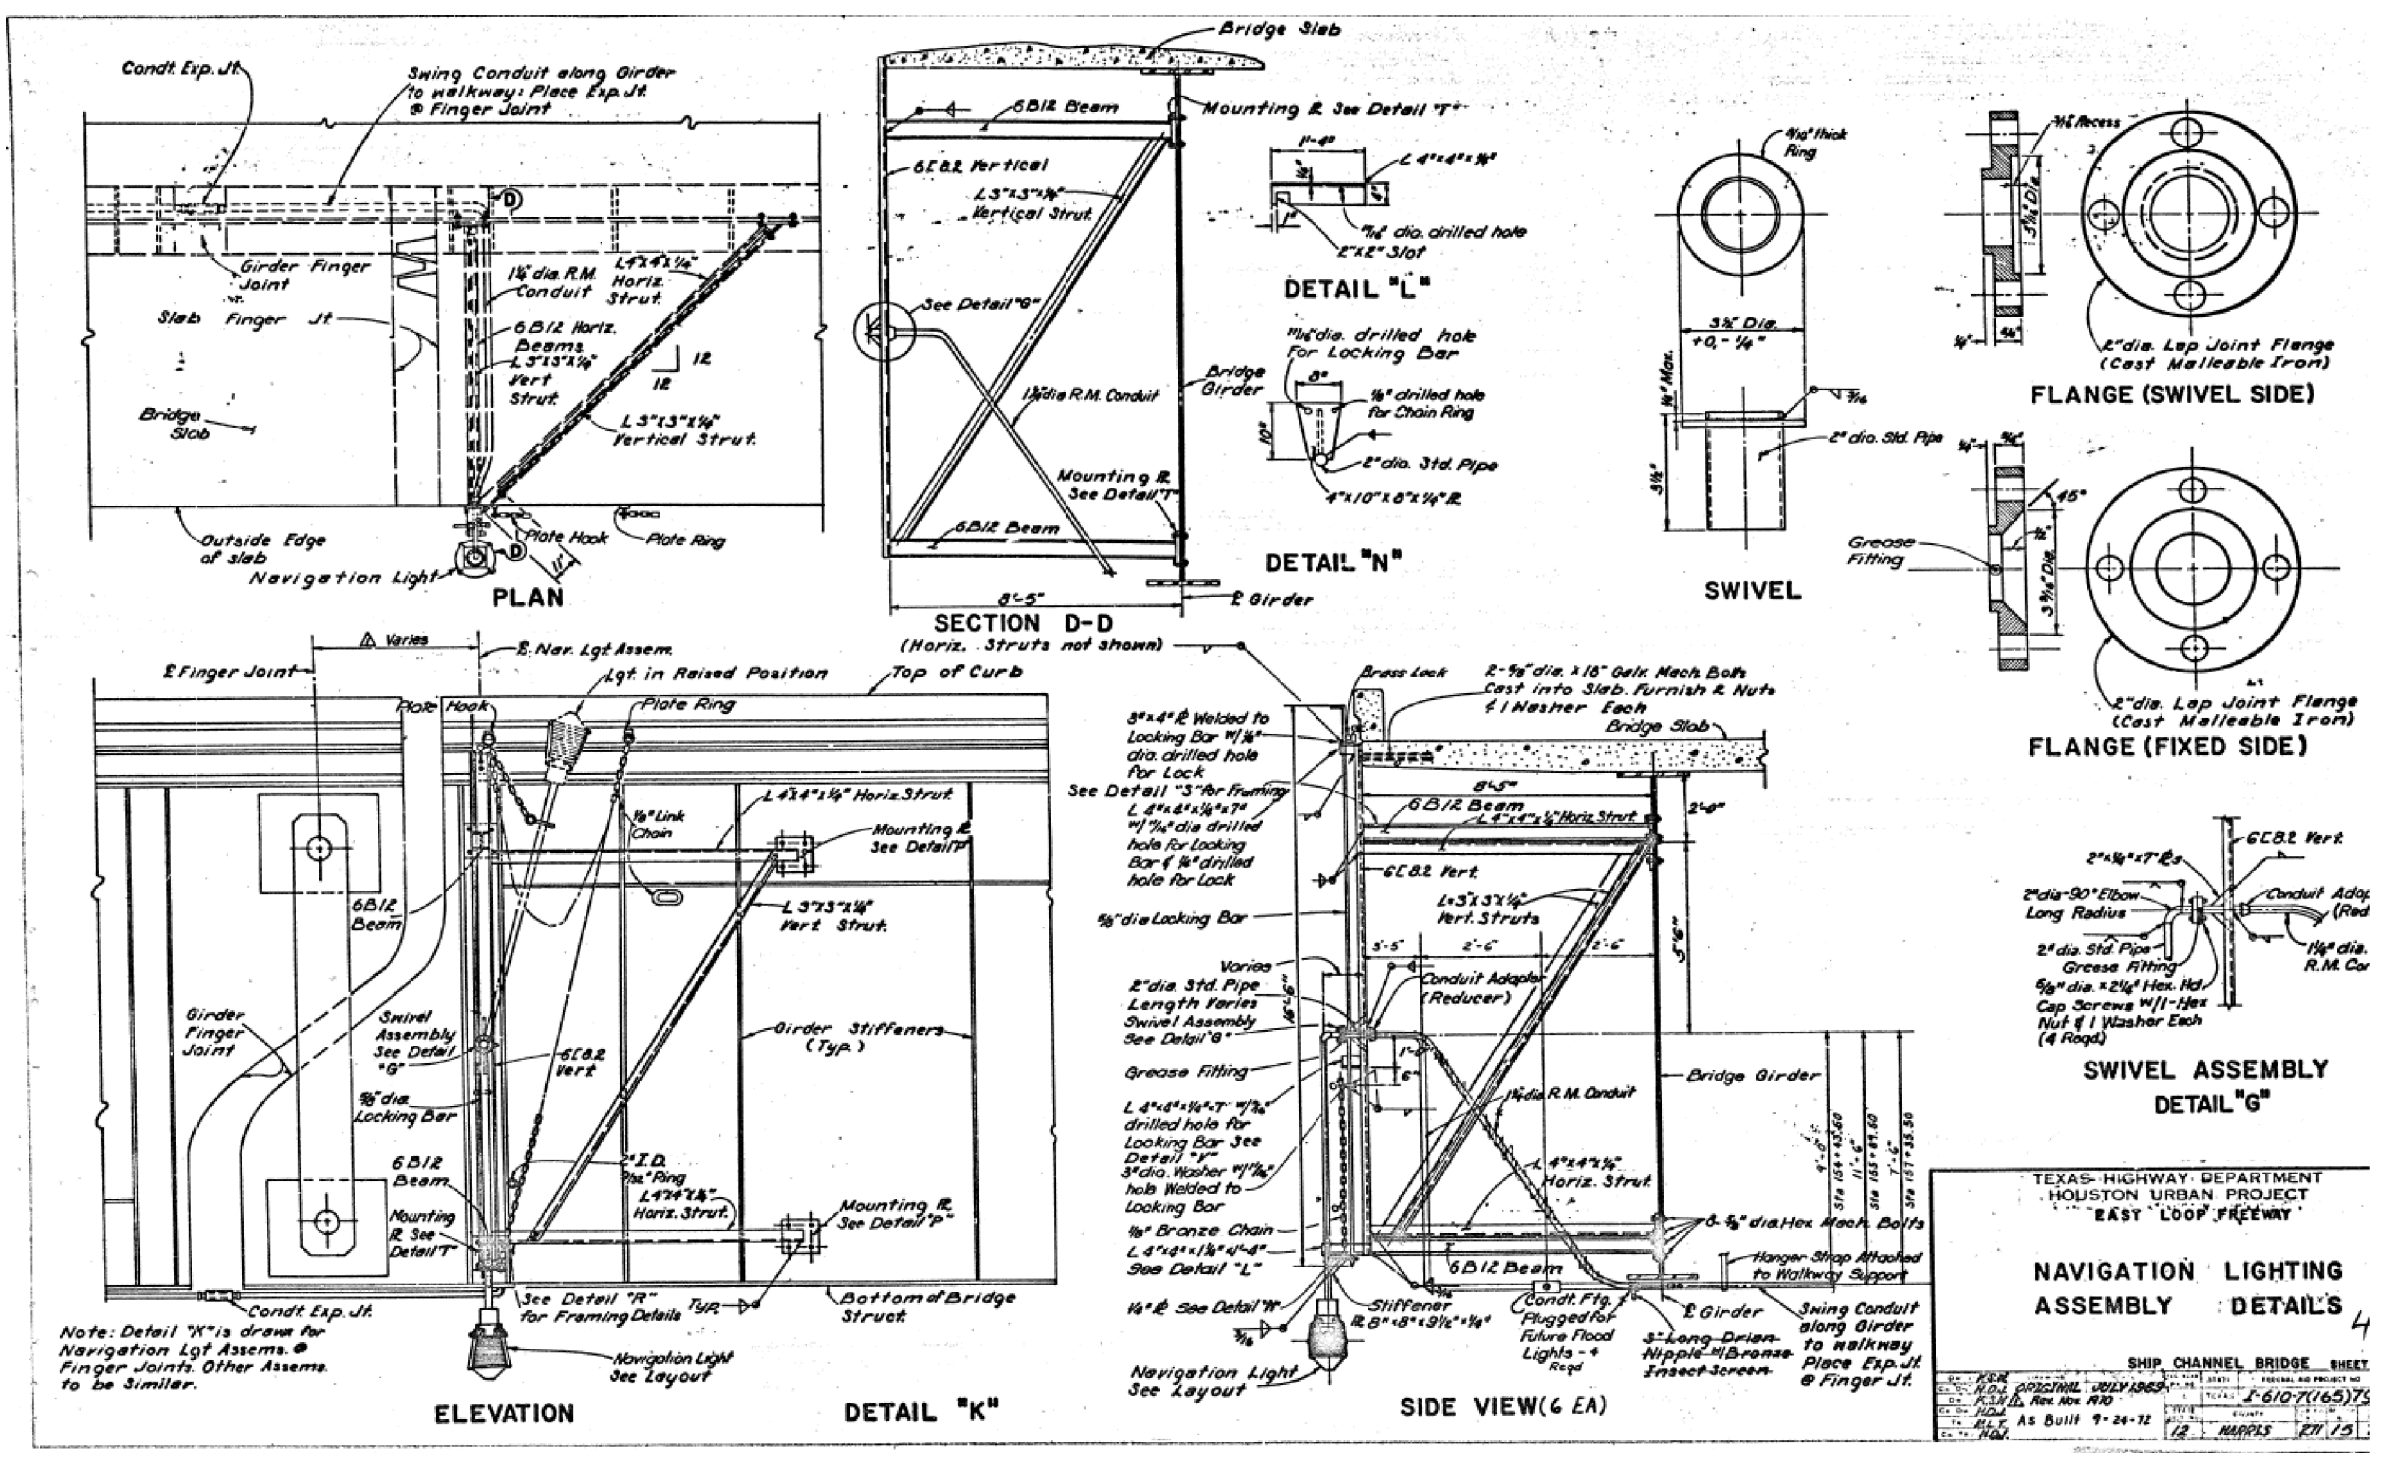 Condt. Exp. Jt.
Swing Conduit along Girder
to walkway: Place Exp. Jt.
@ Finger Joint
D
Girder Finger
Joint
1¼" dia. R.M.
Conduit
L4"x4"x¼"
Horiz.
Strut.
Slab Finger Jt.
6B12 Horiz.
Beams
L3"x3"x¼"
Vert
Strut.
12
12
L3"x3"x¼"
Vertical Strut.
Bridge
Slab
Outside Edge
of slab
Navigation Light
D
Plate Hook
Plate Ring
11"
PLAN
Bridge Slab
6B12 Beam
Mounting ℞ See Detail "T"
6[8.2 Vertical
L3"x3"x¼"
Vertical Strut.
See Detail "G"
Bridge
Girder
1¼" dia R.M. Conduit
Mounting ℞
See Detail "T"
6B12 Beam
8'-5"
℄ Girder
SECTION D-D
(Horiz. Struts not shown)
1'-4"
L 4"x4"x¼"
4"
1"
11/16" dia. drilled hole
2"x2" Slot
DETAIL "L"
11/16" dia. drilled hole
for Locking Bar
8"
drilled hole
for Chain Ring
10"
2" dia. Std. Pipe
4"x10"x8"x¼" ℞
DETAIL "N"
thick
Ring
3½" Dia.
+0,-¼"
¼" Max.
3/16
2" dia. Std. Pipe
3½"
SWIVEL
3/16" Recess
¼"
¾"
2" dia. Lap Joint Flange
(Cast Malleable Iron)
FLANGE (SWIVEL SIDE)
¼"
¾"
45°
½"
3 9/16" Dia.
Grease
Fitting
2" dia. Lap Joint Flange
(Cast Malleable Iron)
FLANGE (FIXED SIDE)
1 Varies
℄ Finger Joint
℄ Nav. Lgt Assem.
Lgt. in Raised Position
Top of Curb
Plate Hook
Plate Ring
Link
Chain
L4"x4"x¼" Horiz. Strut.
Mounting ℞
See Detail "P"
6B12
Beam
L3"x3"x¼"
Vert Strut.
Girder
Finger
Joint
Swivel
Assembly
See Detail
"G"
6[8.2
Vert
Girder Stiffeners
(Typ.)
⅝" dia
Locking Bar
6B12
Beam
2" I.D.
Ring
L4"x4"x¼"
Horiz. Strut.
Mounting ℞
See Detail "P"
Mounting
℞ See
Detail "T"
Condt. Exp. Jt.
See Detail "R"
for Framing Details
Typ.
Bottom of Bridge
Struct.
Navigation Light
See Layout
Note: Detail "K" is drawn for
Navigation Lgt Assems. @
Finger Joints. Other Assems.
to be Similar.
ELEVATION
DETAIL "K"
Brass Lock
2-⅝" dia. x 18" Galv. Mach. Bolts
Cast into Slab. Furnish 2 Nuts
& 1 Washer Each
Bridge Slab
3"x4" ℞ Welded to
Locking Bar w/
dia. drilled hole
for Lock
See Detail "S" for Framing
L 4"x4"x¼"x7"
w/ 11/16" dia drilled
hole for Locking
Bar & drilled
hole for Lock
8'-5"
6B12 Beam
L 4"x4"x¼" Horiz. Strut
2'-0"
6[8.2 Vert.
L 3"x3"x¼"
Vert. Struts
⅝" dia Locking Bar
3'-5"
2'-6"
2'-6"
5'-6"
16'-6"
Varies
2" dia. Std. Pipe
Length Varies
Swivel Assembly
See Detail "G"
Conduit Adapter
(Reducer)
Grease Fitting
1'-0"
6"
1¼" dia R.M. Conduit
Bridge Girder
L 4"x4"x¼"x7" w/
drilled hole for
Locking Bar See
Detail "V"
3" dia. Washer w/ 11/16"
hole Welded to
Locking Bar
Bronze Chain
See Detail "L"
L 4"x4"x¼"
Horiz. Strut.
9'-0"
Sta 154+43.60
11'-6"
7'-6"
8-⅝" dia Hex Mach. Bolts
Hanger Strap Attached
to Walkway Support
6B12 Beam
¼" ℞ See Detail "N"
3/16
Stiffener
℞ 8"x8"x9½"x¼"
Condt. Ftg.
Plugged for
Future Flood
Lights - 4
Reqd
℄ Girder
3" Long Drian
Nipple w/ Bronze
Insect Screen
Swing Conduit
along Girder
to walkway
Place Exp. Jt.
@ Finger Jt.
Navigation Light
See Layout
SIDE VIEW (6 EA)
6[8.2 Vert.
2"x¼"x7" ℞s
2" dia-90° Elbow
Long Radius
Conduit Adap
(Red
2" dia. Std. Pipe
Grease Fitting
1¼" dia.
R.M. Con
⅝" dia. x 2¼" Hex. Hd.
Cap Screws w/1-Hex
Nut & 1 Washer Each
(4 Reqd)
SWIVEL ASSEMBLY
DETAIL "G"
TEXAS HIGHWAY DEPARTMENT
HOUSTON URBAN PROJECT
EAST LOOP FREEWAY
NAVIGATION LIGHTING
ASSEMBLY DETAILS
4
SHIP CHANNEL BRIDGE SHEET
ORIGINAL JULY 1969
Rev. Nov. 1970
As Built 9-24-72
TEXAS
I-610-7(165)79
12 HARRIS 271 15